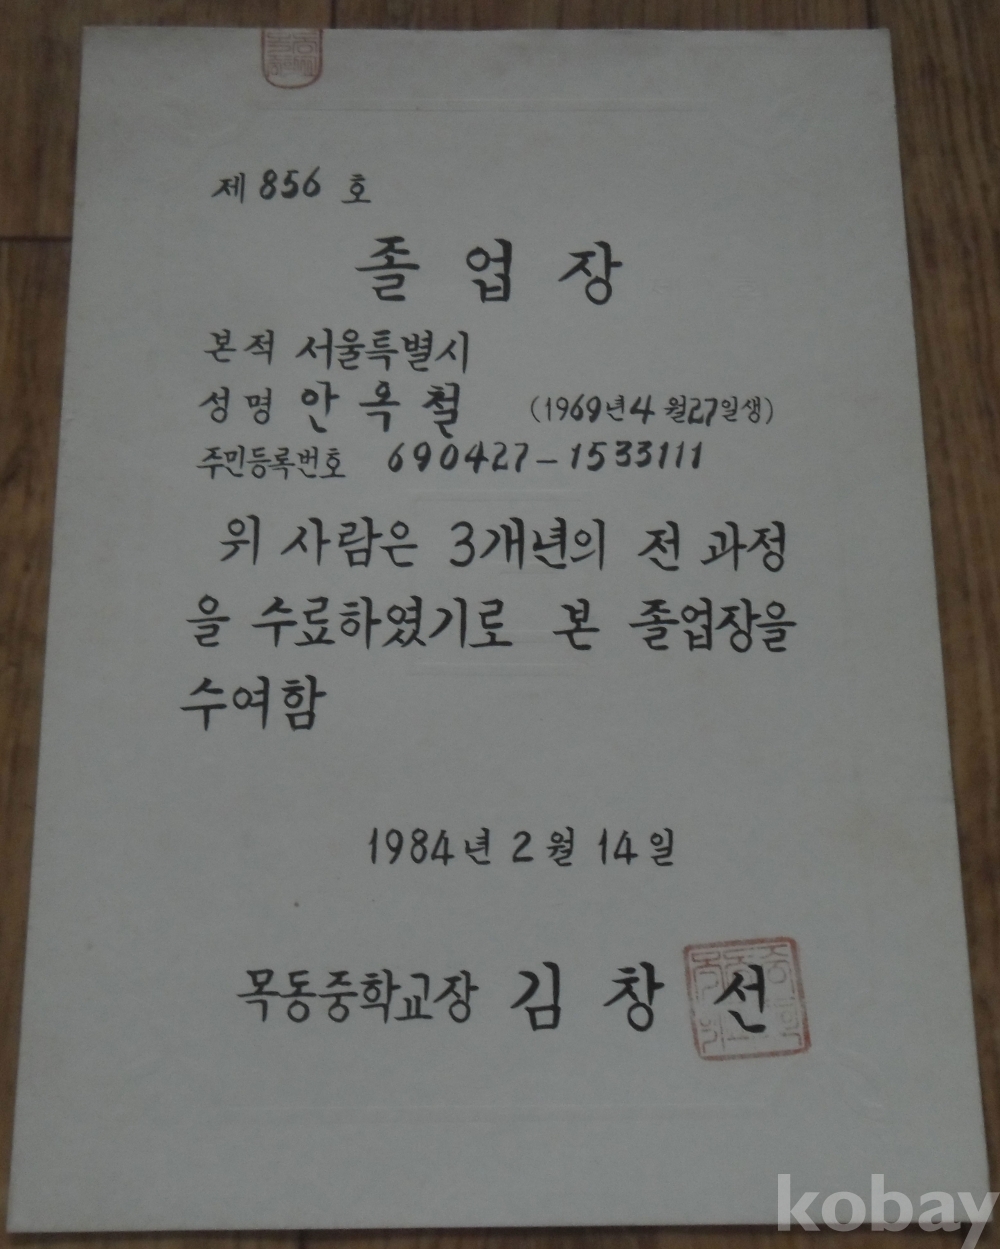 제 856 호
졸 업 장
본적 서울특별시
성명 안 옥 철 (1969년 4월 27일생)
주민등록번호 690427-1533111
위 사람은 3개년의 전 과정
을 수료하였기로 본 졸업장을
수여함
1984년 2월 14일
목동중학교장 김 창 선
kobay